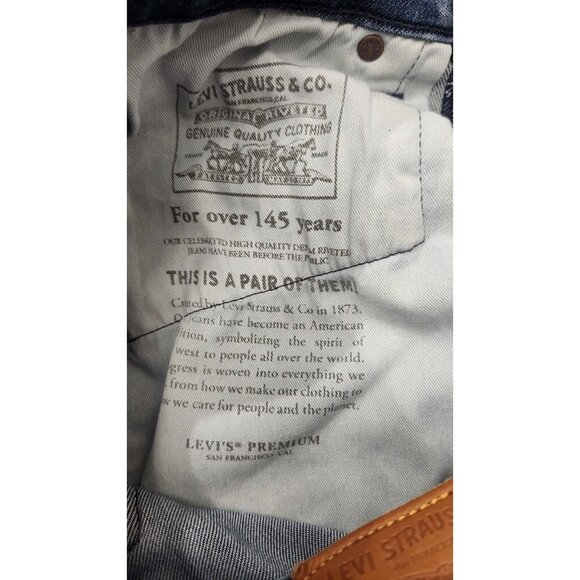 LEVI STRAUSS & CO.
SAN FRANCISCO, CAL.
ORIGINAL RIVETED
GENUINE QUALITY CLOTHING
TRADE MARK
For over 145 years
OUR CELEBRATED HIGH QUALITY DENIM RIVETED
JEANS HAVE BEEN BEFORE THE PUBLIC
THIS IS A PAIR OF THEM!
Created by Levi Strauss & Co in 1873.
jeans have become an American
ition, symbolizing the spirit of
west to people all over the world.
gress is woven into everything we
from how we make our clothing to
w we care for people and the planet.
LEVI'S® PREMIUM
SAN FRANCISCO, CAL
LEVI STRAUSS